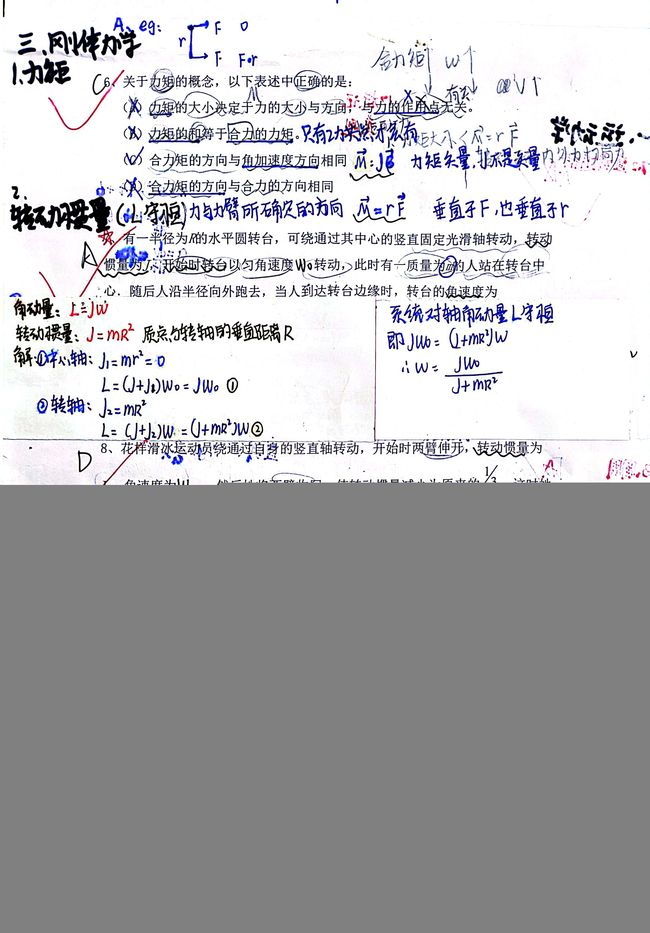 A、eg: r F 0
F For
三、刚体力学
1.力矩
合力矩 W↑
有关 V↑
C 6、关于力矩的概念，以下表述中正确的是：
(A) 力矩的大小决定于力的大小与方向，与力的作用点无关。
(B) 力矩的和等于合力的力矩。只有
(C) 合力矩的方向与角加速度方向相同 M=Jβ 力矩矢量, 功不是矢量
(D) 合力矩的方向与合力的方向相同
2.
转动惯量(L守恒) 力与力臂所确定的方向 M=rF 垂直于F,也垂直于r
A 有一半径为R的水平圆转台，可绕通过其中心的竖直固定光滑轴转动，转动
惯量为J，开始时转台以匀角速度W0转动，此时有一质量为m的人站在转台中
心．随后人沿半径向外跑去，当人到达转台边缘时，转台的角速度为
角动量: L=JW
转动惯量: J=mR² 质点与转轴的垂直距离R
解:①中心轴: J₁=mr²=0
L=(J+J₁)W₀=JW₀ ①
②转轴: J₂=mR²
L=(J+J₂)W=(J+mR²)W②
系统对轴角动量L守恒
即JW₀=(J+mR²)W
∴W=JW₀/(J+mR²)
D 8、花样滑冰运动员绕通过自身的竖直轴转动，开始时两臂伸开，转动惯量为